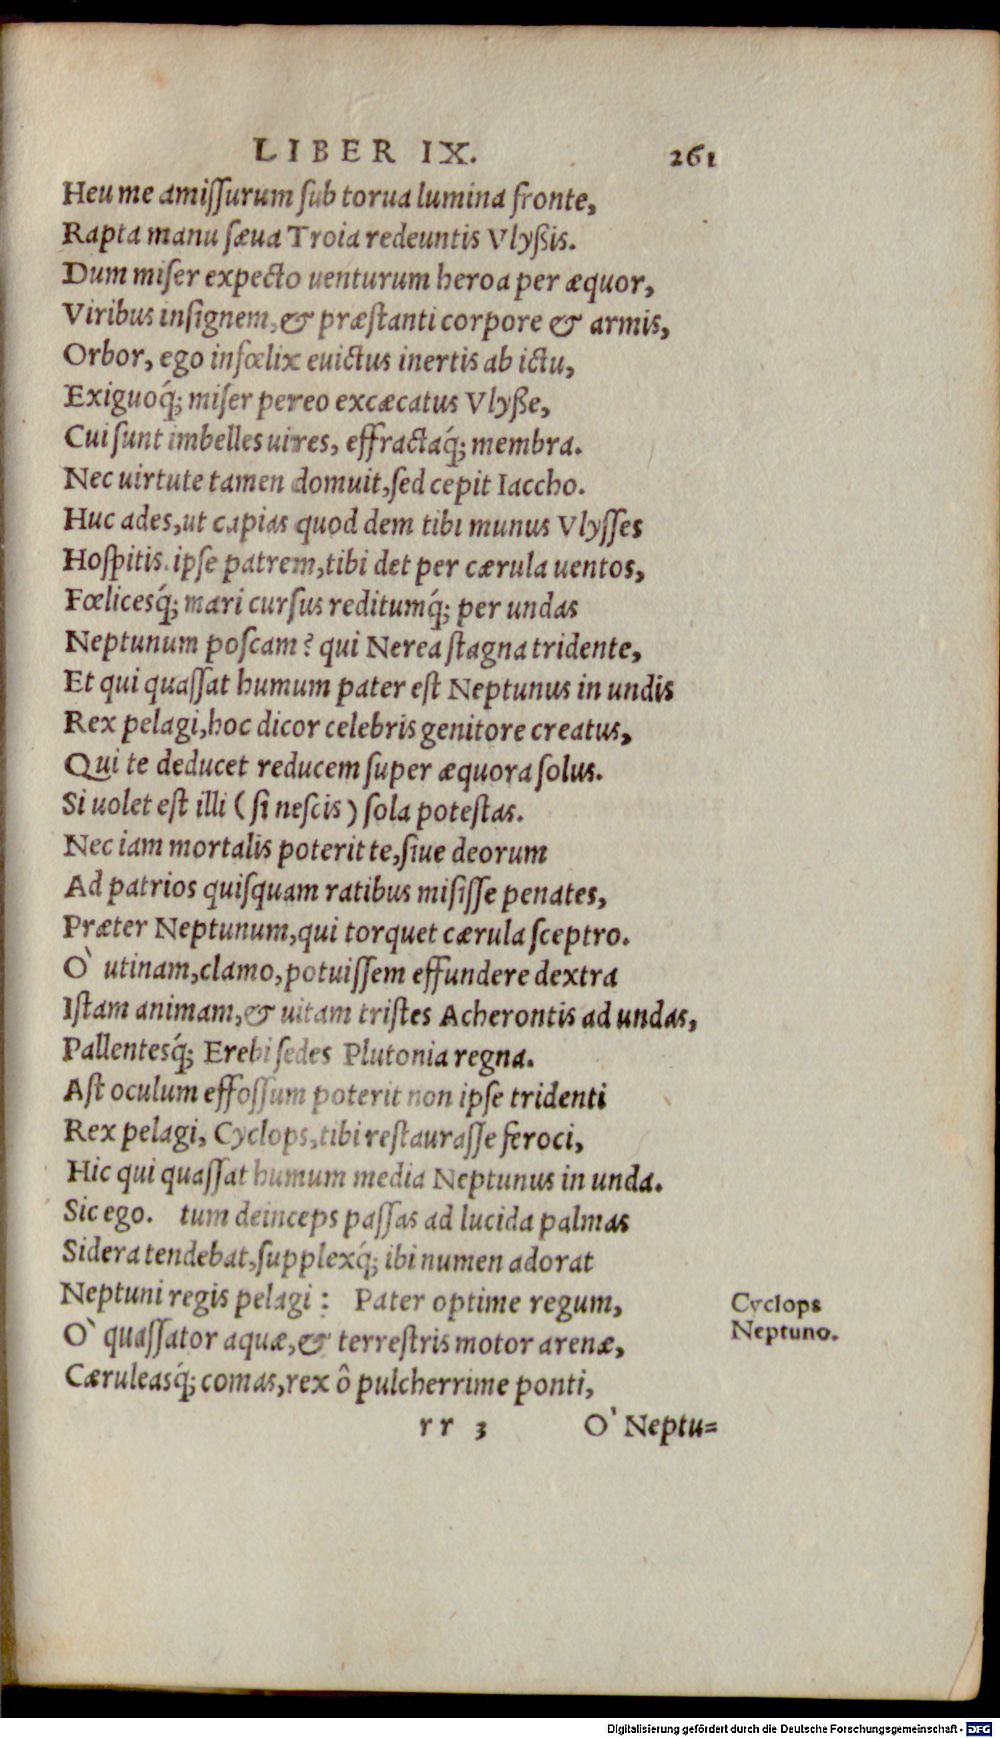 LIBER IX. 261
Heu me amiſſurum ſub torua lumina fronte,
Rapta manu ſæua Troia redeuntis Vlyßis.
Dum miſer expecto venturum heroa per æquor,
Viribus inſignem, & præſtanti corpore & armis,
Orbor, ego infœlix euictus inertis ab ictu,
Exiguoq́; miſer pereo excæcatus Vlyße,
Cui ſunt imbelles uires, effractaq́; membra.
Nec uirtute tamen domuit, ſed cepit Iaccho.
Huc ades, ut capias quod dem tibi munus Vlyſſes
Hoſpitis. ipſe patrem, tibi det per cærula uentos,
Fœlicesq́; mari curſus reditumq́; per undas
Neptunum poſcam? qui Nerea ſtagna tridente,
Et qui quaſſat humum pater eſt Neptunus in undis
Rex pelagi, hoc dicor celebris genitore creatus,
Qui te deducet reducem ſuper æquora ſolus.
Si uolet eſt illi (ſi neſcis) ſola poteſtas.
Nec iam mortalis poterit te, ſiue deorum
Ad patrios quiſquam ratibus miſiſſe penates,
Præter Neptunum, qui torquet cærula ſceptro.
O` utinam, clamo, potuiſſem effundere dextra
Iſtam animam, & uitam triſtes Acherontis ad undas,
Pallentesq́; Erebi ſedes Plutonia regna.
Aſt oculum effoſſum poterit non ipſe tridenti
Rex pelagi, Cyclops, tibi reſtauraſſe feroci,
Hic qui quaſſat humum media Neptunus in unda.
Sic ego. tum deinceps paſſas ad lucida palmas
Sidera tendebat, ſupplexq́; ibi numen adorat
Neptuni regis pelagi: Pater optime regum,
Cyclops
Neptuno.
O` quaſſator aquæ, & terreſtris motor arenæ,
Cæruleasq́; comas, rex ô pulcherrime ponti,
rr 3 O` Neptu=
Digitalisierung gefördert durch die Deutsche Forschungsgemeinschaft - DFG